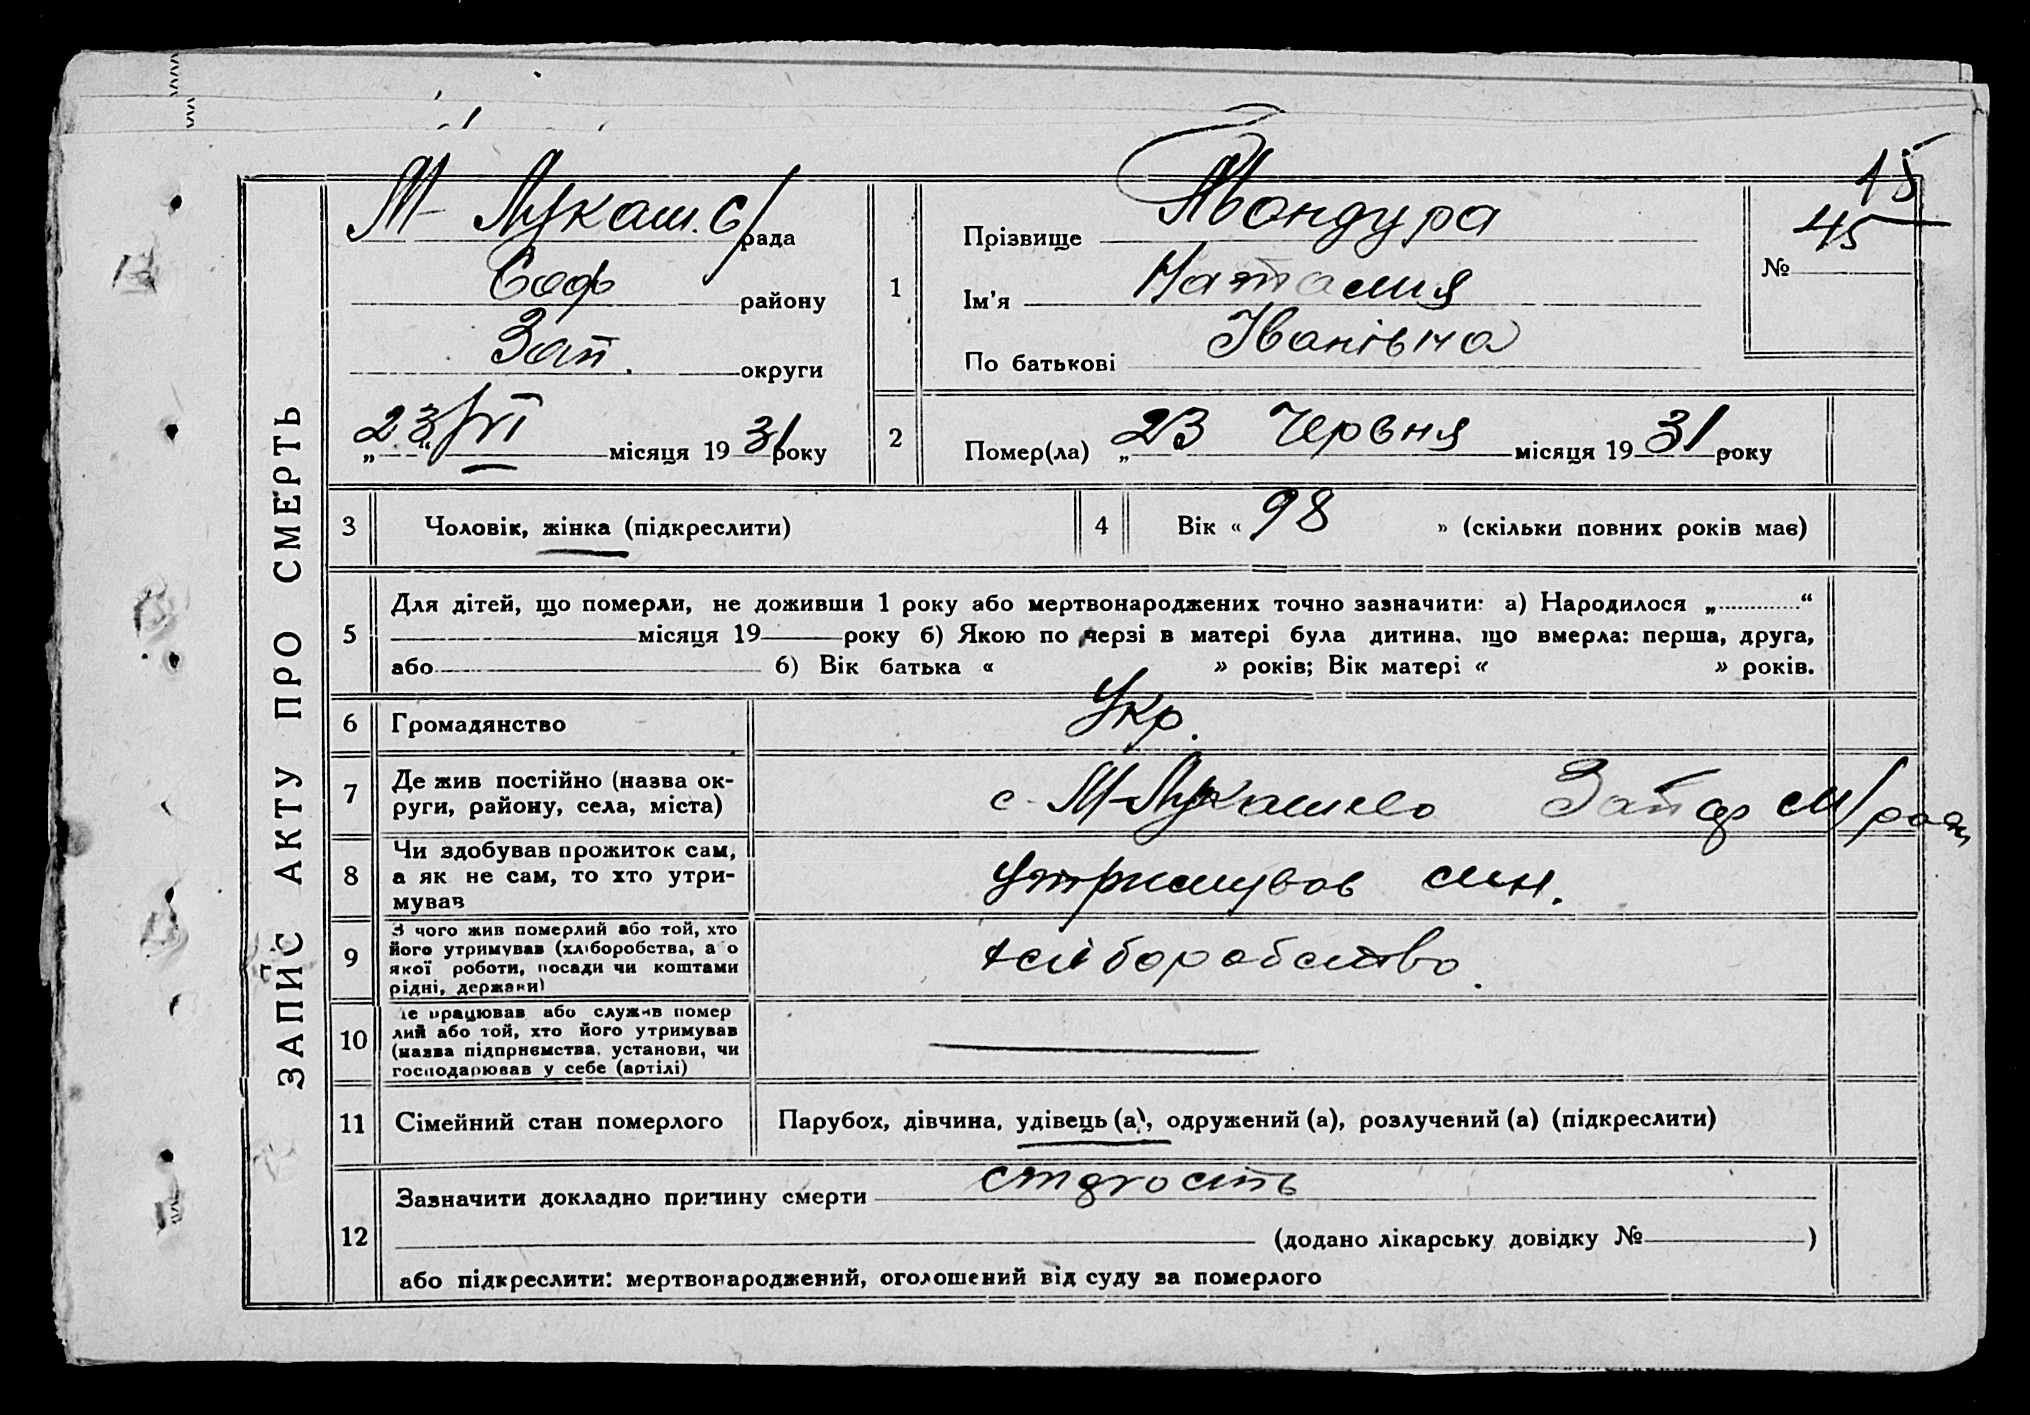 ЗАПИС АКТУ ПРО СМЕРТЬ
М-Лукаш. с/рада
Соф району
Зап. округи
„23“/VI місяця 1931 року
1
Прізвище
Ім'я Наталия
По батькові Іванівна
15
45
№
2
Помер(ла) „23 Червня місяця 1931 року
3 Чоловік, жінка (підкреслити)
4 Вік « 98 » (скільки повних років має)
5
Для дітей, що померли, не доживши 1 року або мертвонароджених точно зазначити: а) Народилося „ “
місяця 19 року б) Якою по черзі в матері була дитина, що вмерла: перша, друга,
або б) Вік батька « » років; Вік матері « » років.
6 Громадянство Укр.
7 Де жив постійно (назва ок-
руги, району, села, міста)
с. М-Лукашево Зап м/рад
8 Чи здобував прожиток сам,
а як не сам, то хто утри-
мував
утримував син.
9 З чого жив померлий або той, хто
його утримував (хліборобства, а о
якої роботи, посади чи коштами
рідні, держави)
хліборобство.
10 Де працював або служив помер
лий або той, хто його утримував
(назва підприємства, установи, чи
господарював у себе (артілі)
11 Сімейний стан померлого Парубок, дівчина, удівець (а), одружений (а), розлучений (а) (підкреслити)
12 Зазначити докладно причину смерти старость
(додано лікарську довідку № )
або підкреслити: мертвонароджений, оголошений від суду за померлого